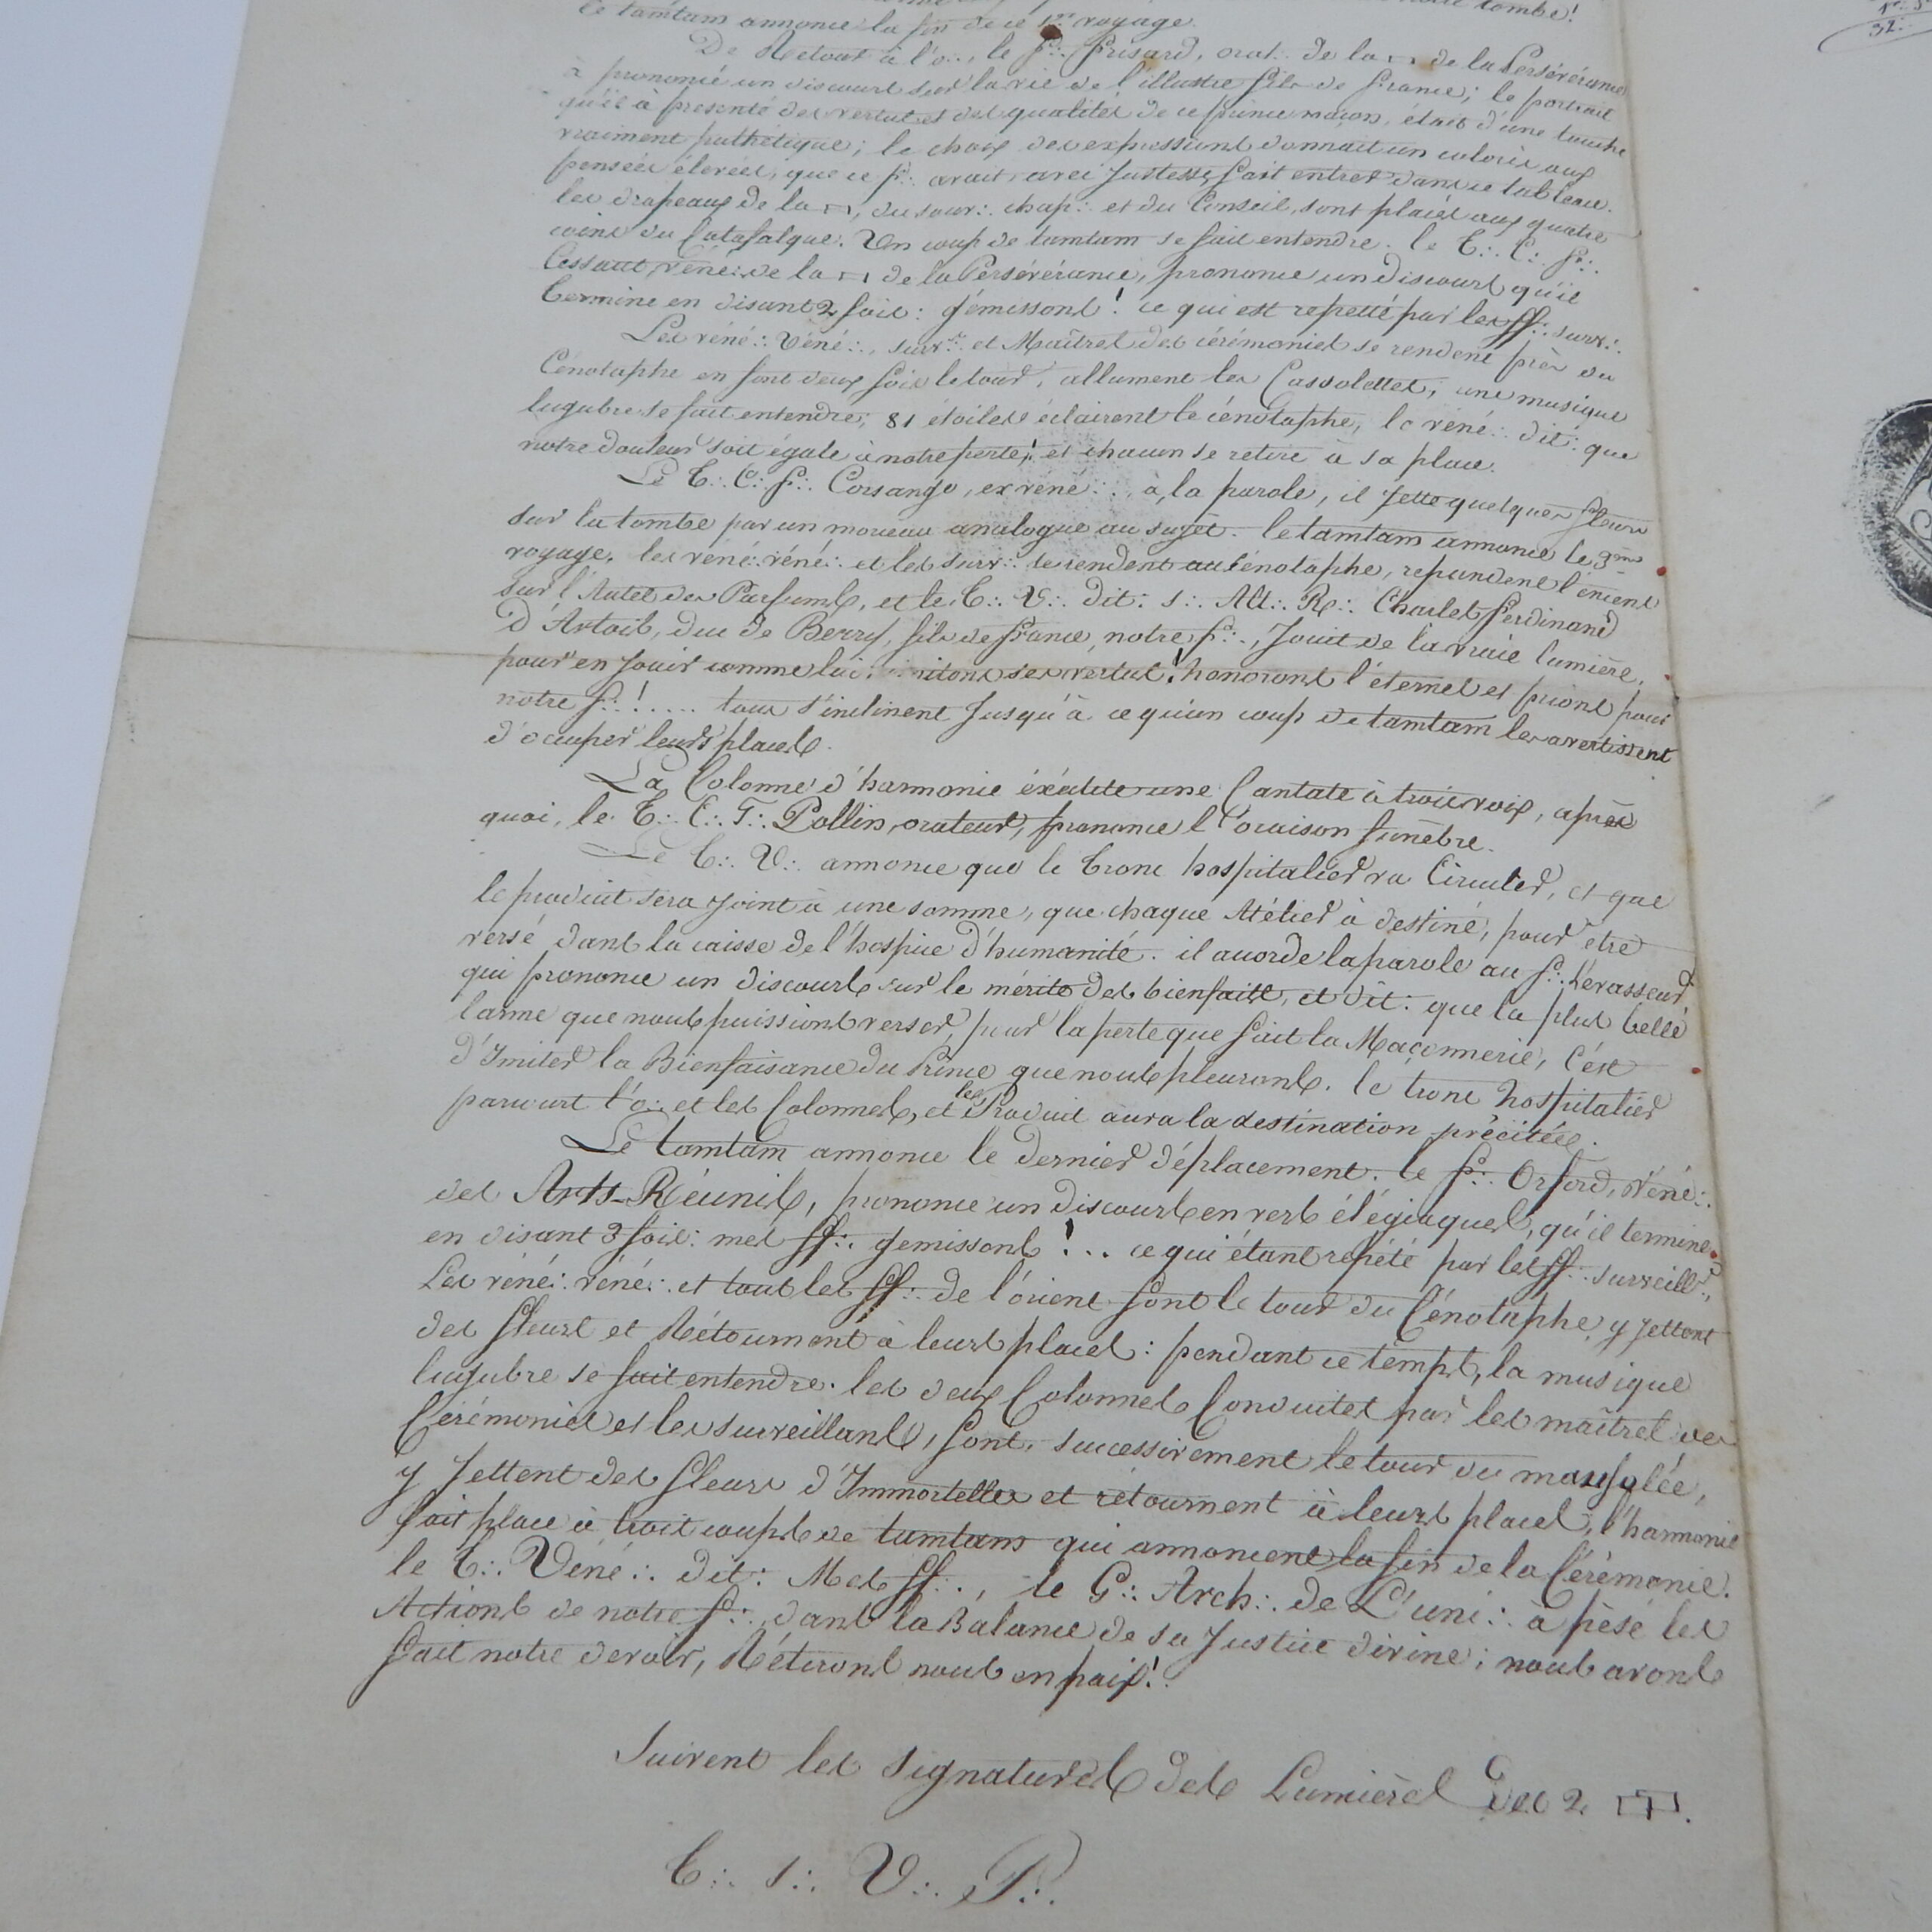 notre tombe!
Le tamtam annonce la fin de ce 1er voyage.
De Retour à l'o∴, le f∴ Frisard, orat∴ de la □ de la Persévérance
à prononcé un discours sur la vie de l'illustre fils de France; le portrait
qu'il à présenté des vertus et des qualités de ce prince maçon, était d'une touche
vraiment pathétique; le choix des expressions donnait un coloris aux
pensées élevées, que ce f∴ avait avec Justesse, fait entrer dans ce tableau.
les drapeaux de la □, du souv∴ chap∴ et du Conseil, sont placés aux quatre
coins du Catafalque. Un coup de tamtam se fait entendre. le T∴ C∴ f∴
Cessaut, véné∴ de la □ de la Persévérance, prononce un discours qu'il
termine en disant 2 fois: gémissons! ce qui est repetté par les ff∴ surv∴
Les véné∴ Véné∴, surv∴ et Maîtres des cérémonies se rendent près du
Cénotaphe en font deux fois le tour, allument les Cassolettes; une musique
lugubre se fait entendre; 81 étoiles éclairent le cénotaphe, le véné∴ dit: que
notre douleur soit égale à notre perte! et chacun se retire à sa place.
Le T∴ C∴ f∴ Corsange, ex véné∴ à la parole, il jette quelques fleurs
sur la tombe par un morceau analogue au sujet. le tamtam annonce le 3me
voyage. les véné∴ véné∴ et les surv∴ se rendent au Cénotaphe, repandent l'encens
sur l'Autel des Parfums, et le T∴ V∴ dit: S∴ Alt∴ R∴ Charles Ferdinand
D'Artois, duc de Berry, fils de france, notre f∴, Jouit de la vraie lumière,
pour en Jouir comme lui, imitons ses vertus! honorons l'éternel et prions pour
notre f∴! .... tous s'inclinent Jusqu'à ce qu'un coup de tamtam les avertissent
d'occuper leurs places.
La Colonne d'harmonie éxécute une Cantate à trois voix, après
quoi, le T∴ C∴ F∴ Pollin, orateur, prononce l'Oraison funèbre.
Le T∴ V∴ annonce que le tronc hospitalier va Circuler, et que
le produit sera joint à une somme, que chaque Atélier à destiné, pour etre
versé dans la caisse de l'hospice d'humanité. il accorde la parole au f∴ Levasseur
qui prononce un discours sur le mérite des bienfaits, et dit: que la plus belle
larme que nous puissions verser, pour la perte que fait la Maçonnerie, c'est
d'Imiter la Bienfaisance du Prince que nous pleurons. le tronc hospitalier
parcourt l'o∴ et les Colonnes, et le Produit aura la destination précitée.
Le tamtam annonce le dernier déplacement. le f∴ Orford, véné∴
des Arts-Réunis, prononce un discours en vers élégiaques, qu'il termine
en disant 3 fois: mes ff∴ gemissons! .. ce qui étant répété par les ff∴ surveill∴,
Les véné∴ véné∴ et tous les ff∴ de l'orient font le tour du Cénotaphe, y jettent
des fleurs et Rétournent à leurs places: pendant ce temps, la musique
lugubre se fait entendre. les deux Colonnes Conduites par les maîtres des
Cérémonies et les surveillants, font, successivement le tour du mausolée,
y jettent des fleurs d'Immortelles et rétournent à leurs places, l'harmonie
fait place à trois coups de tamtam qui annoncent la fin de la Cérémonie.
le T∴ Véné∴ dit: Mes ff∴, le G∴ Arch∴ de L'uni∴ à pèsé les
Actions de notre f∴, dans la Balance de sa Justice divine; nous avons
fait notre devoir, Rétirons nous en paix!
Suivent les signatures des Lumières des 2 □.
T∴ S∴ V∴ P∴